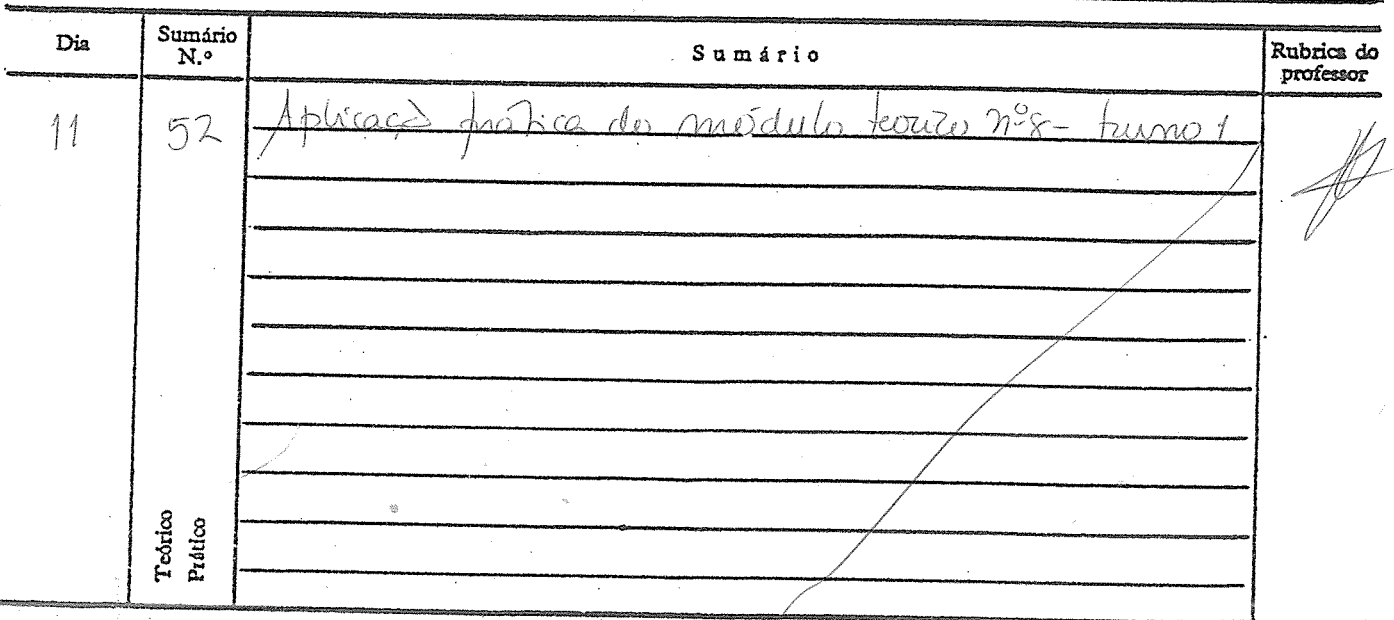 Dia Sumário N.º Sumário Rubrica do professor
11 52 Aplicação prática do módulo teorico nº8 - turno 1
Teórico
Prático